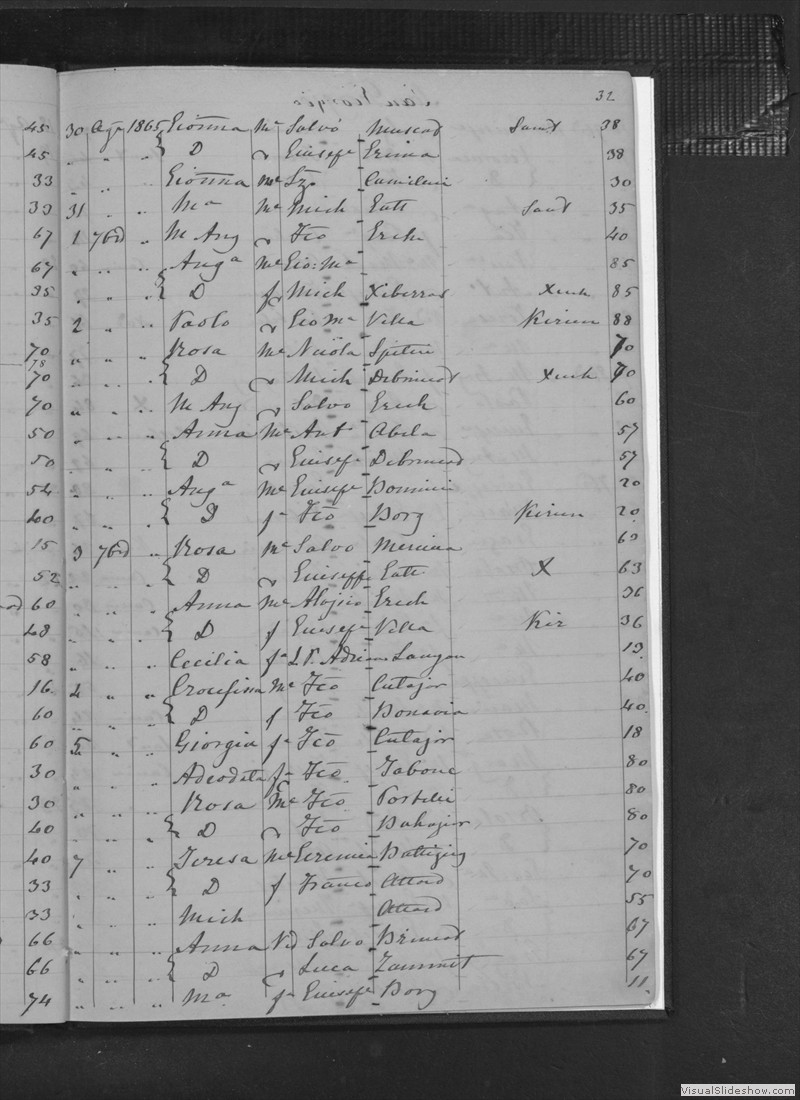 32
45 30 Ago 1865 Gionna Me Salvo Muscat Sant 38
45 " " " D Giusepe 38
33 " " " Gionna me Camilleri 30
33 31 " " Ma Me Mich Sant 35
67 1 7bd " M Ang Fco Erich 40
67 " " " Anga Me Gio: Ma 85
35 " " " D f Mich Xiberras Xeuk 85
35 2 " " Paolo Gio Ma Vella Kircun 88
70 " " " Rosa Me Nicola Spiteri 70
78
70 " " " D Mich Debrincat Xeuk 70
70 " " " M Ang Salvo Erich 60
50 " " " Anna Me Ant Abela 57
50 " " " D Giusepe Debrincat 57
54 " " " Anga Me Giusepe 20
40 " " " D f Fco Borg Kircun 20
15 3 7bd " Rosa Me Salvo 63
52 " " " D Giuseppe X 63
60 " " " Anna Me Aloisio Erich 36
48 " " " D f Giusepe Vella Kir 36
58 " " " Cecilia fa 19
16 4 " " Crocifissa Me Fco Cutajar 40
60 " " " D f Fco Bonavia 40
60 5 " " Giorgia fa Fco Cutajar 18
30 " " " Adeodata fa Fco Tabone 80
30 " " " Rosa Me Fco Portelli 80
40 " " " D Fco Buhagiar 80
40 7 " " Teresa Me Geremia Battigieg 70
33 " " " D f Franco Attard 70
33 " " " Mich Attard 55
66 " " " Anna Vd Salvo Brincat 67
66 " " " D Luca Zammit 67
74 " " " Ma fa Giusepe Borg 11
VisualSlideshow.com